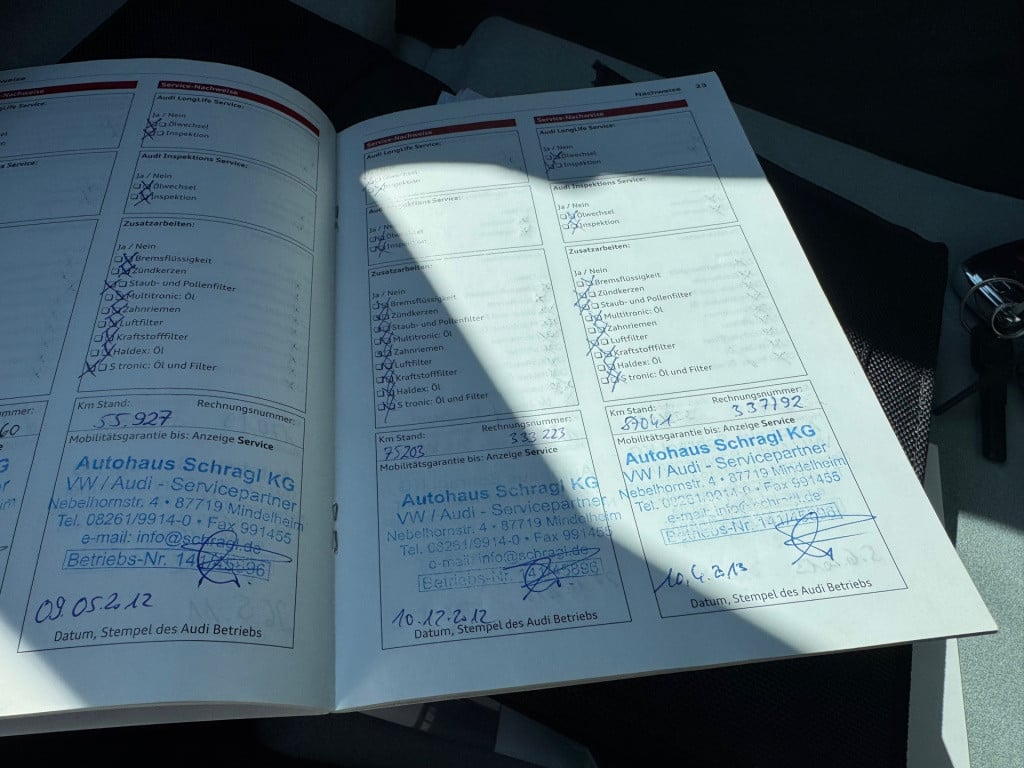 Service-Nachweise
Audi LongLife Service:
Ja / Nein
Ölwechsel
Inspektion
Audi Inspektions Service:
Ja / Nein
Ölwechsel
Inspektion
Zusatzarbeiten:
Ja / Nein
Bremsflüssigkeit
Zündkerzen
Staub- und Pollenfilter
Multitronic: Öl
Zahnriemen
Luftfilter
Kraftstofffilter
Haldex: Öl
S tronic: Öl und Filter
Km Stand: Rechnungsnummer:
55.927
Mobilitätsgarantie bis: Anzeige Service
Autohaus Schragl KG
VW / Audi - Servicepartner
Nebelhornstr. 4 • 87719 Mindelheim
Tel. 08261/9914-0 • Fax 991455
e-mail: info@schragl.de
Betriebs-Nr.
09.05.2012
Datum, Stempel des Audi Betriebs
Nachweise 23
Service-Nachweise
Audi LongLife Service:
Ja / Nein
Ölwechsel
Inspektion
Audi Inspektions Service:
Ja / Nein
Ölwechsel
Inspektion
Zusatzarbeiten:
Ja / Nein
Bremsflüssigkeit
Zündkerzen
Staub- und Pollenfilter
Multitronic: Öl
Zahnriemen
Luftfilter
Kraftstofffilter
Haldex: Öl
S tronic: Öl und Filter
Km Stand: Rechnungsnummer:
75203 333 223
Mobilitätsgarantie bis: Anzeige Service
Autohaus Schragl KG
VW / Audi - Servicepartner
Nebelhornstr. 4 • 87719 Mindelheim
Tel. 08261/9914-0 • Fax 991455
e-mail: info@schragl.de
Betriebs-Nr.
10.12.2012
Datum, Stempel des Audi Betriebs
Service-Nachweise
Audi LongLife Service:
Ja / Nein
Ölwechsel
Inspektion
Audi Inspektions Service:
Ja / Nein
Ölwechsel
Inspektion
Zusatzarbeiten:
Ja / Nein
Bremsflüssigkeit
Zündkerzen
Staub- und Pollenfilter
Multitronic: Öl
Zahnriemen
Luftfilter
Kraftstofffilter
Haldex: Öl
S tronic: Öl und Filter
Km Stand: Rechnungsnummer:
87041 337192
Mobilitätsgarantie bis: Anzeige Service
Autohaus Schragl KG
VW / Audi - Servicepartner
Nebelhornstr. 4 • 87719 Mindelheim
Tel. 08261/9914-0 • Fax 991455
e-mail: info@schragl.de
Betriebs-Nr.
10.4.2013
Datum, Stempel des Audi Betriebs